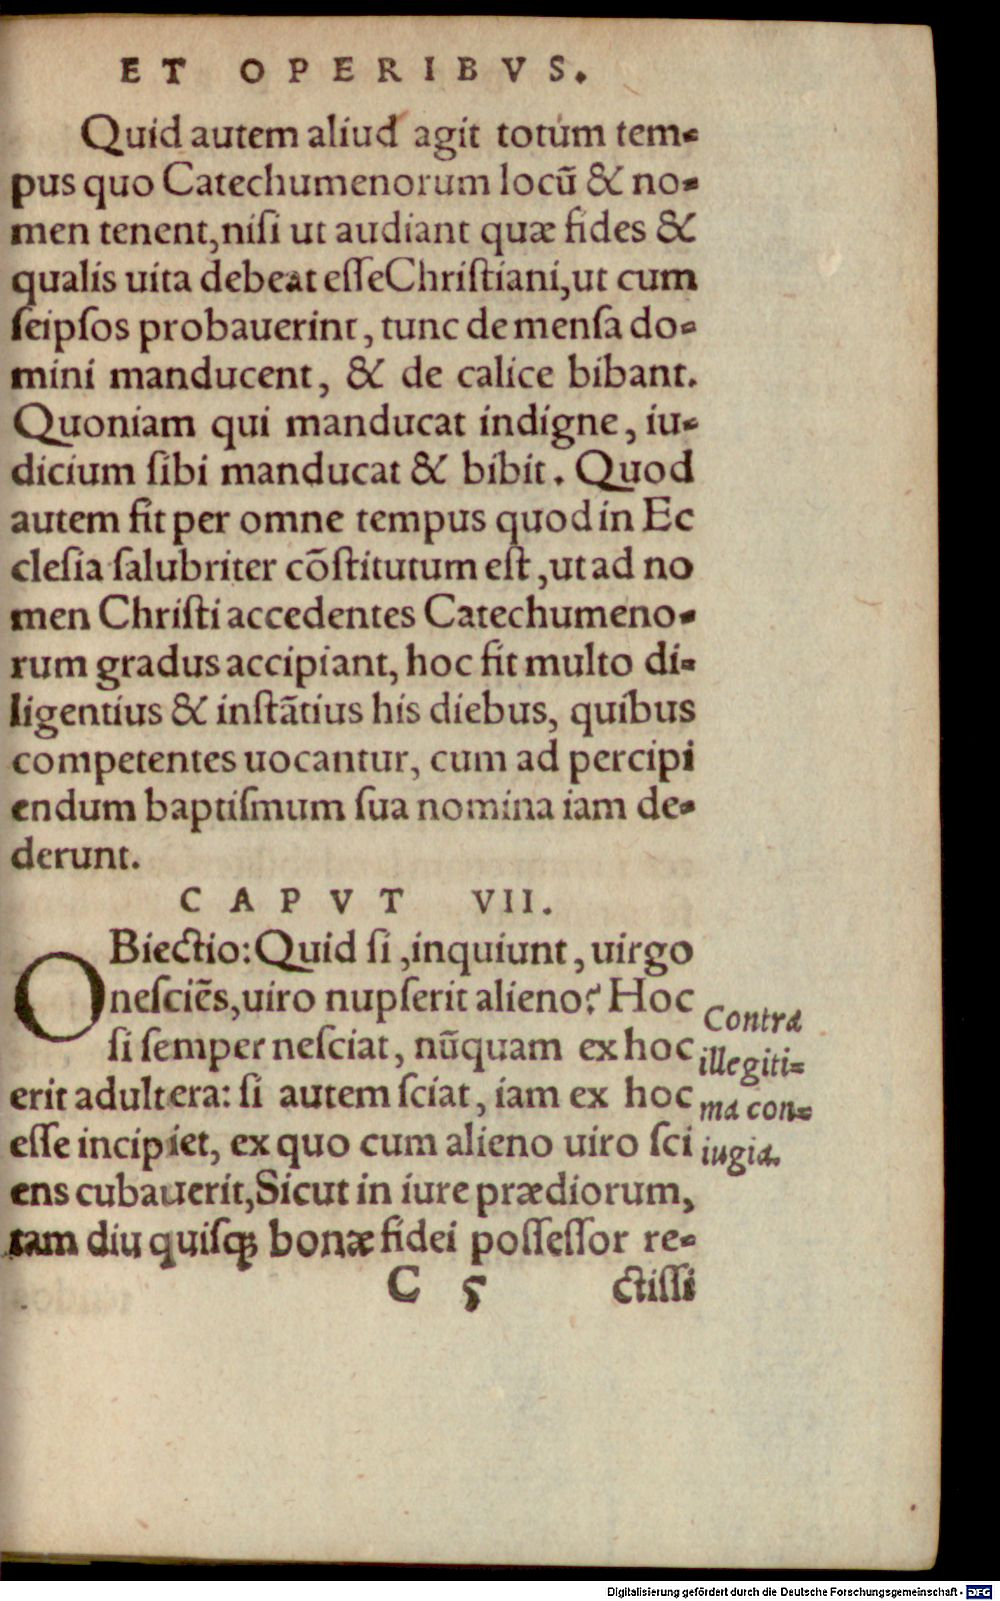 ET OPERIBVS.
Quid autem aliud agit totum tem-
pus quo Catechumenorum locū & no-
men tenent, niſi ut audiant quæ fides &
qualis uita debeat eſſe Chriſtiani, ut cum
ſeipſos probauerint, tunc de menſa do-
mini manducent, & de calice bibant.
Quoniam qui manducat indigne, iu-
dicium ſibi manducat & bibit. Quod
autem fit per omne tempus quod in Ec
cleſia ſalubriter cōſtitutum eſt, ut ad no
men Chriſti accedentes Catechumeno-
rum gradus accipiant, hoc fit multo di-
ligentius & inſtātius his diebus, quibus
competentes uocantur, cum ad percipi
endum baptiſmum ſua nomina iam de-
derunt.
CAPVT VII.
OBiectio: Quid ſi, inquiunt, uirgo
neſciēs, uiro nupſerit alieno? Hoc
ſi ſemper neſciat, nūquam ex hoc
erit adultera: ſi autem ſciat, iam ex hoc
eſſe incipiet, ex quo cum alieno uiro ſci
ens cubauerit, Sicut in iure prædiorum,
tam diu quiſqꝫ bonæ fidei poſſeſſor re-
C 5 ctiſſi
Contra
illegiti-
ma con-
iugia.
Digitalisierung gefördert durch die Deutsche Forschungsgemeinschaft - DFG